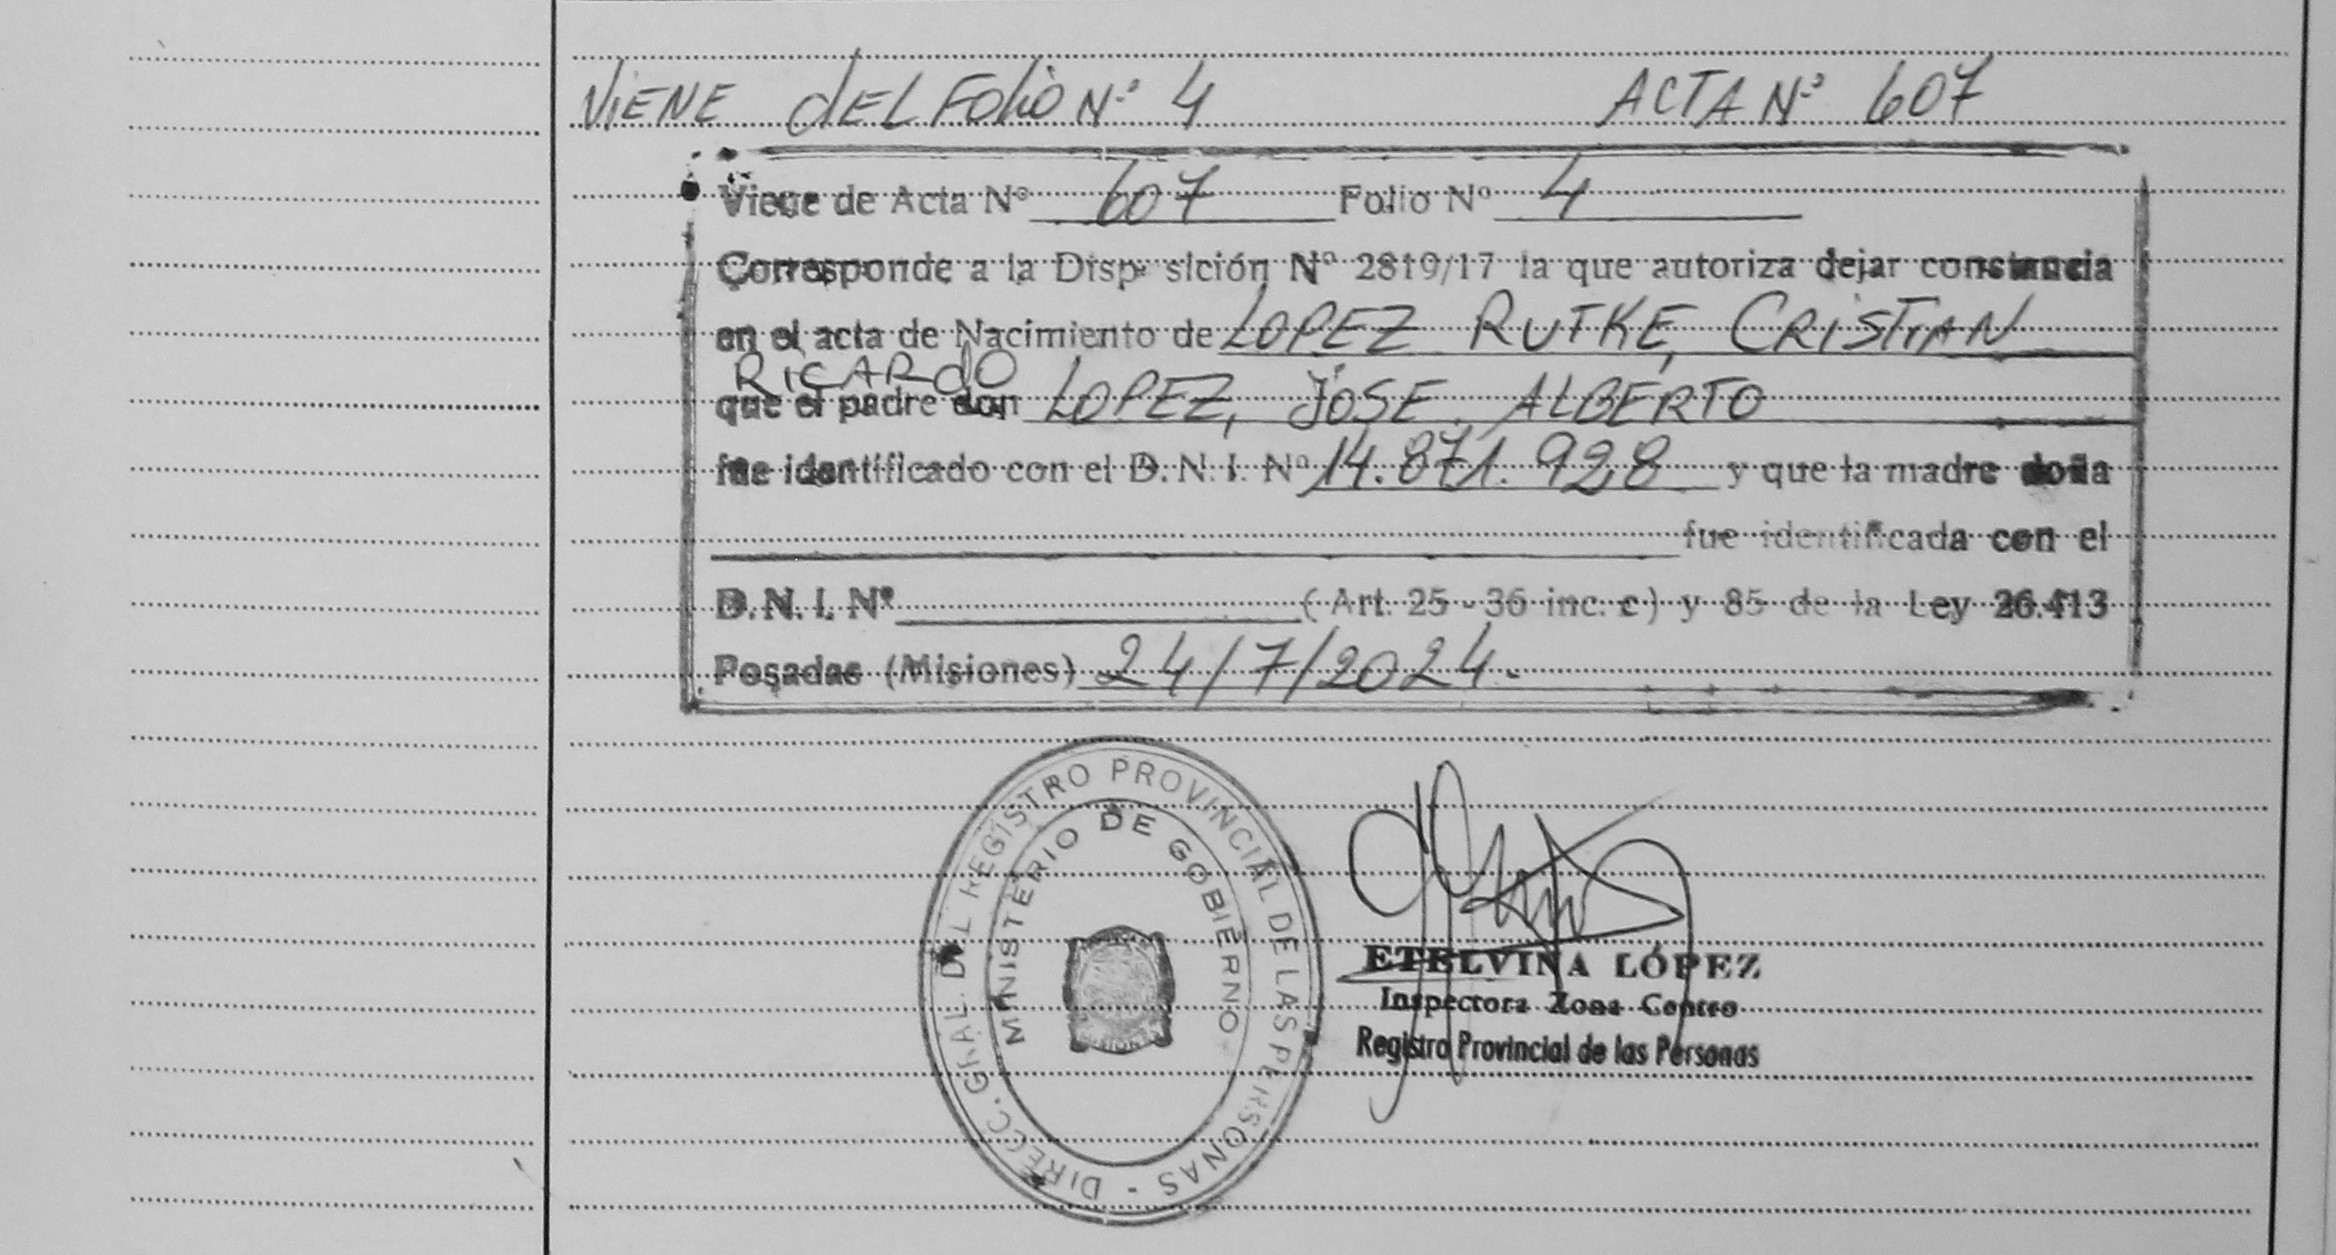 VIENE dEL FOLIO Nº 4 ACTA Nº 607
Viene de Acta Nº 607 Folio Nº 4
Corresponde a la Disp sición Nº 2819/17 la que autoriza dejar constancia
en el acta de Nacimiento de LOPEZ RUTKE, CRISTIAN
RICARdO
que el padre don LOPEZ, JOSE ALBERTO
fue identificado con el D.N.I. Nº 14.871.928 y que la madre doña
fue identificada con el
D.N.I. Nº (Art. 25 - 36 inc. c) y 85 de la Ley 26.413
Posadas (Misiones) 24/7/2024.-
DIRECC. GRAL. DEL REGISTRO PROVINCIAL DE LAS PERSONAS -
MINISTERIO DE GOBIERNO
ETELVINA LÓPEZ
Inspectora Zona Centro
Registro Provincial de las Personas